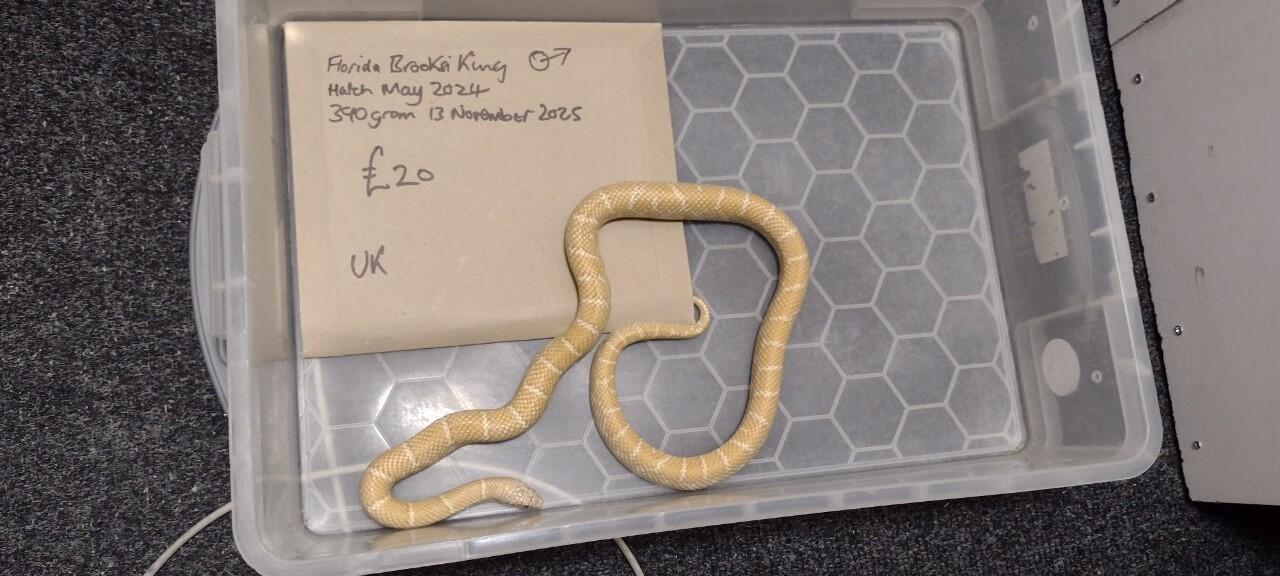 Florida Brooksi King ♂
Hatch May 2024
390 gram 13 November 2025
£20
UK